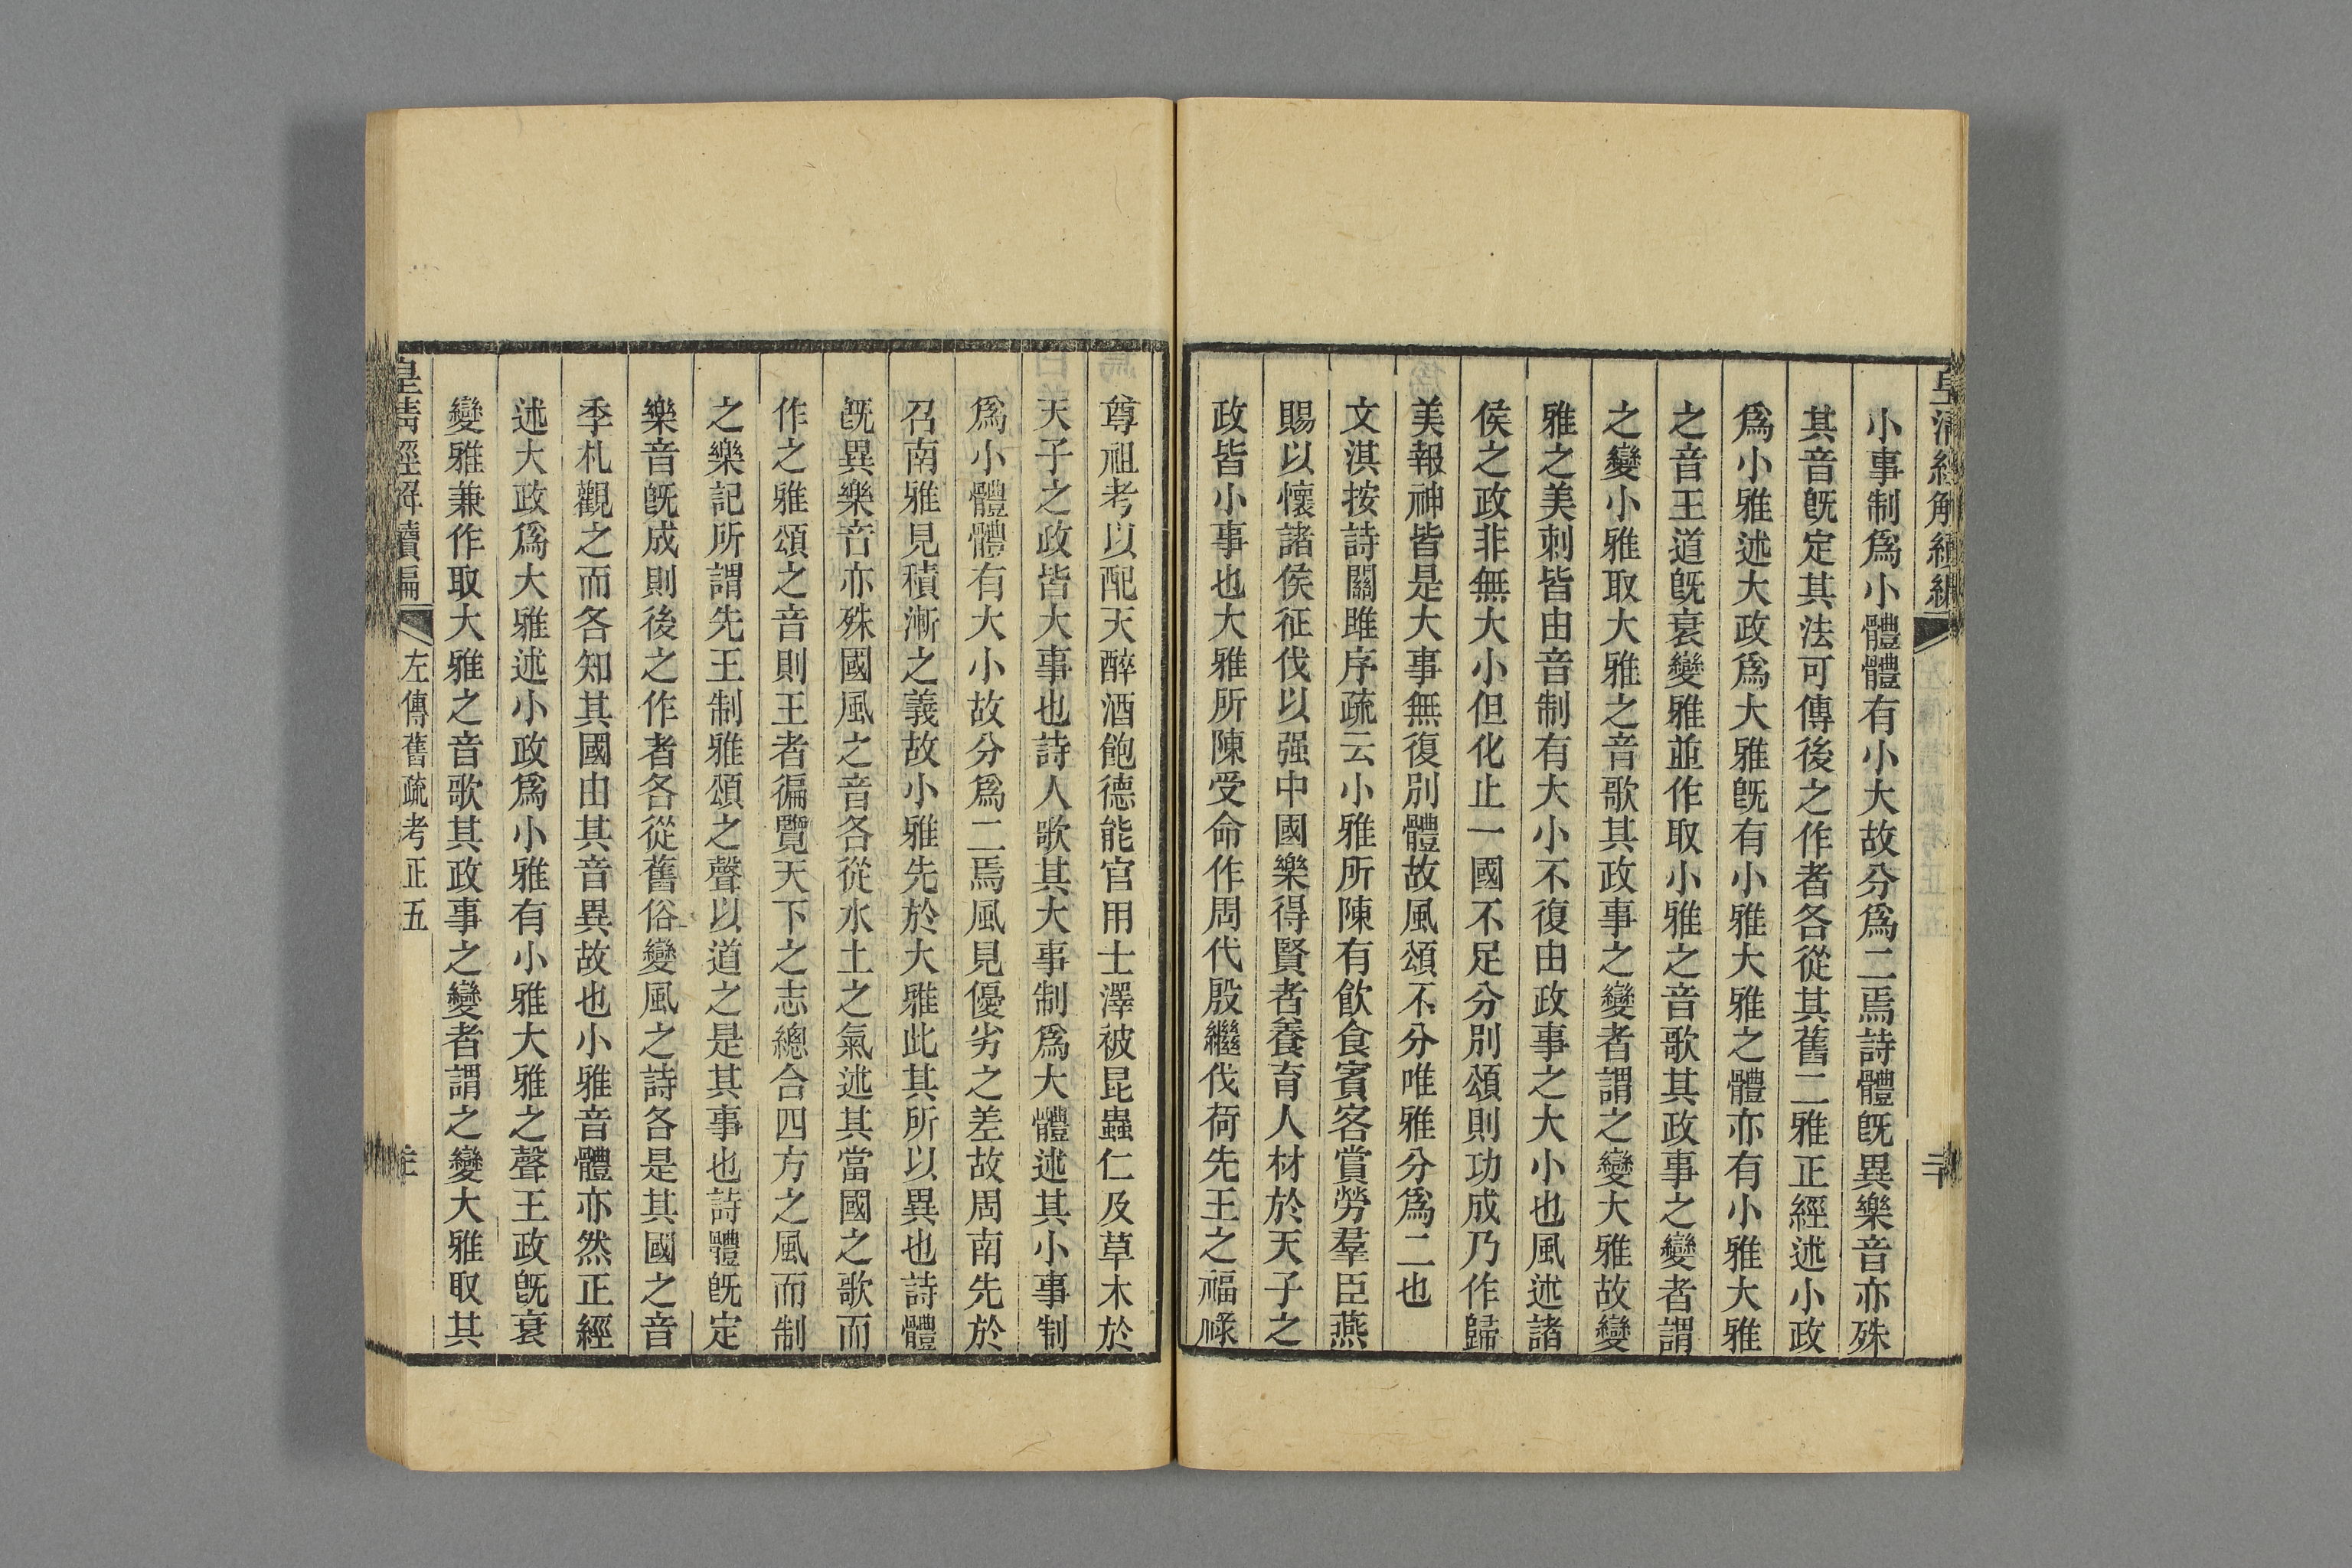 皇清經解續編
二十
小事制爲小體體有小大故分爲二焉詩體旣異樂音亦殊
其音旣定其法可傳後之作者各從其舊二雅正經述小政
爲小雅述大政爲大雅旣有小雅大雅之體亦有小雅大雅
之音王道旣衰變雅並作取小雅之音歌其政事之變者謂
之變小雅取大雅之音歌其政事之變者謂之變大雅故變
雅之美刺皆由音制有大小不復由政事之大小也風述諸
侯之政非無大小但化止一國不足分別頌則功成乃作歸
美報神皆是大事無復別體故風頌不分唯雅分爲二也
文淇按詩關雎序疏云小雅所陳有飲食賓客賞勞羣臣燕
賜以懷諸侯征伐以强中國樂得賢者養育人材於天子之
政皆小事也大雅所陳受命作周代殷繼伐荷先王之福祿
尊祖考以配天醉酒飽德能官用士澤被昆蟲仁及草木於
天子之政皆大事也詩人歌其大事制爲大體述其小事制
爲小體體有大小故分爲二焉風見優劣之差故周南先於
召南雅見積漸之義故小雅先於大雅此其所以異也詩體
旣異樂音亦殊國風之音各從水土之氣述其當國之歌而
作之雅頌之音則王者徧覽天下之志總合四方之風而制
之樂記所謂先王制雅頌之聲以道之是其事也詩體旣定
樂音旣成則後之作者各從舊俗變風之詩各是其國之音
季札觀之而各知其國由其音異故也小雅音體亦然正經
述大政爲大雅述小政爲小雅有小雅大雅之聲王政旣衰
變雅兼作取大雅之音歌其政事之變者謂之變大雅取其
皇清經解續編
左傳舊疏考正五